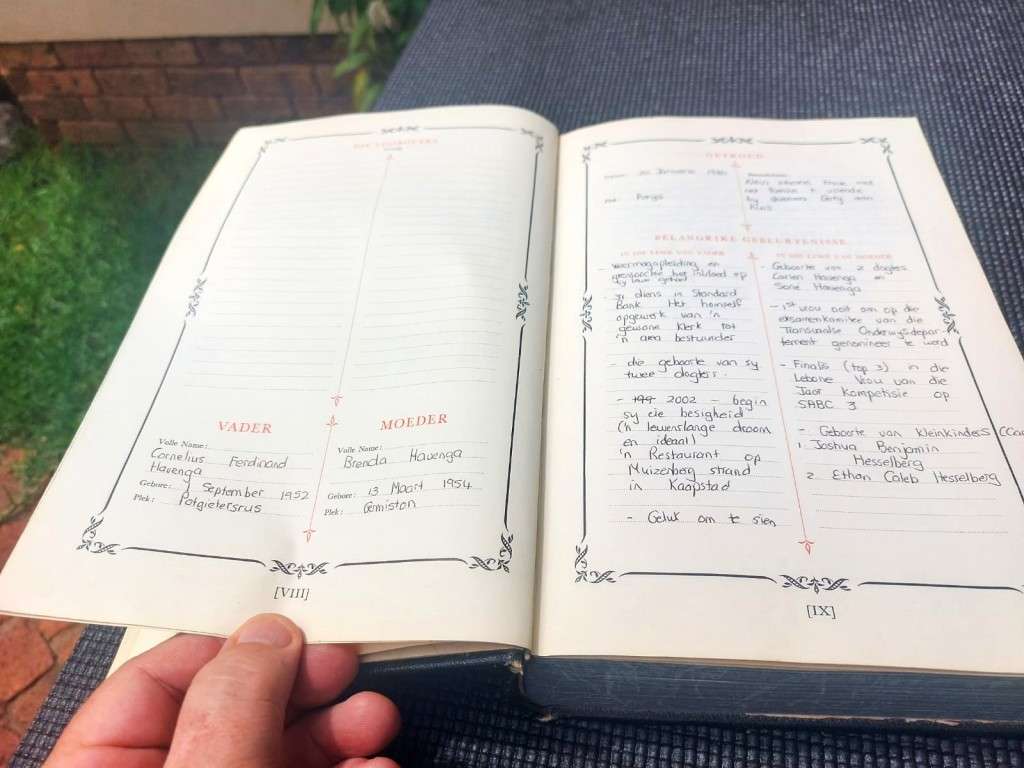 DIE VOOROUERS
VADER
Volle Name:
Cornelius Ferdinand
Havenga
Gebore: 9 September 1952
Plek: Potgietersrus
MOEDER
Volle Name:
Brenda Havenga
Gebore: 13 Maart 1954
Plek: Germiston
[VIII]
GETROUD
Januarie
Parys
BELANGRIKE GEBEURTENISSE
IN DIE LEWE VAN VADER
en
het invloed op
sy lewe gehad
- sy diens in Standard
Bank. Het homself
opgewerk van 'n
gewone klerk tot
'n area bestuurder
- die geboorte van sy
twee dogters.
- 199 2002 - begin
sy eie besigheid
('n lewenslange droom
en ideaal)
'n Restaurant op
Muizenberg strand
in Kaapstad
- Geluk om te sien
IN DIE LEWE VAN MOEDER
- Geboorte van 2 dogters
Carien Havenga en
Soné Havenga
- 1st vrou ooit om op die
eksamenkomitee van die
Transvaalse Onderwysdepar-
tement genomineer te word
- Finalis (top 3) in die
Lebone Vrou van die
Jaar kompetisie op
SABC 3
- Geboorte van kleinkinders
1. Joshua Benjamin
Hesselberg
2. Ethan Caleb Hesselberg
[IX]